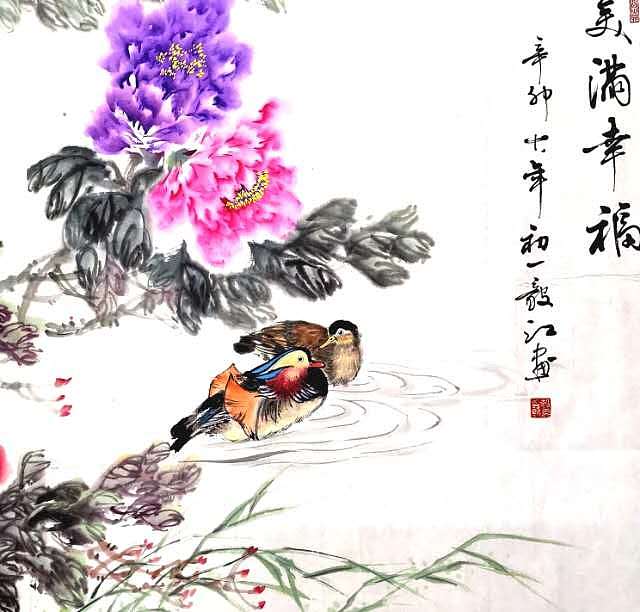 美满幸福
辛卯十年初一毅江画